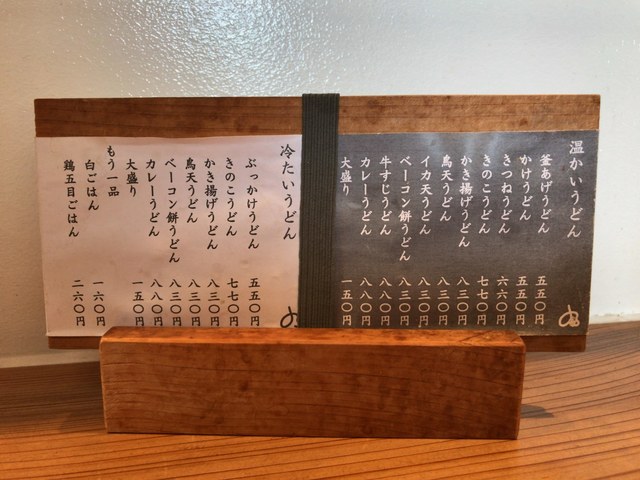 温かいうどん
釜あげうどん 五五〇円
かけうどん 五五〇円
きつねうどん 六六〇円
きのこうどん 七七〇円
かき揚げうどん 八三〇円
鳥天うどん 八三〇円
イカ天うどん 八三〇円
ベーコン餅うどん 八三〇円
牛すじうどん 八八〇円
カレーうどん 八八〇円
大盛り 一五〇円
冷たいうどん
ぶっかけうどん 五五〇円
きのこうどん 七七〇円
かき揚げうどん 八三〇円
鳥天うどん 八三〇円
ベーコン餅うどん 八三〇円
カレーうどん 八八〇円
大盛り 一五〇円
もう一品
白ごはん 一六〇円
鶏五目ごはん 二六〇円